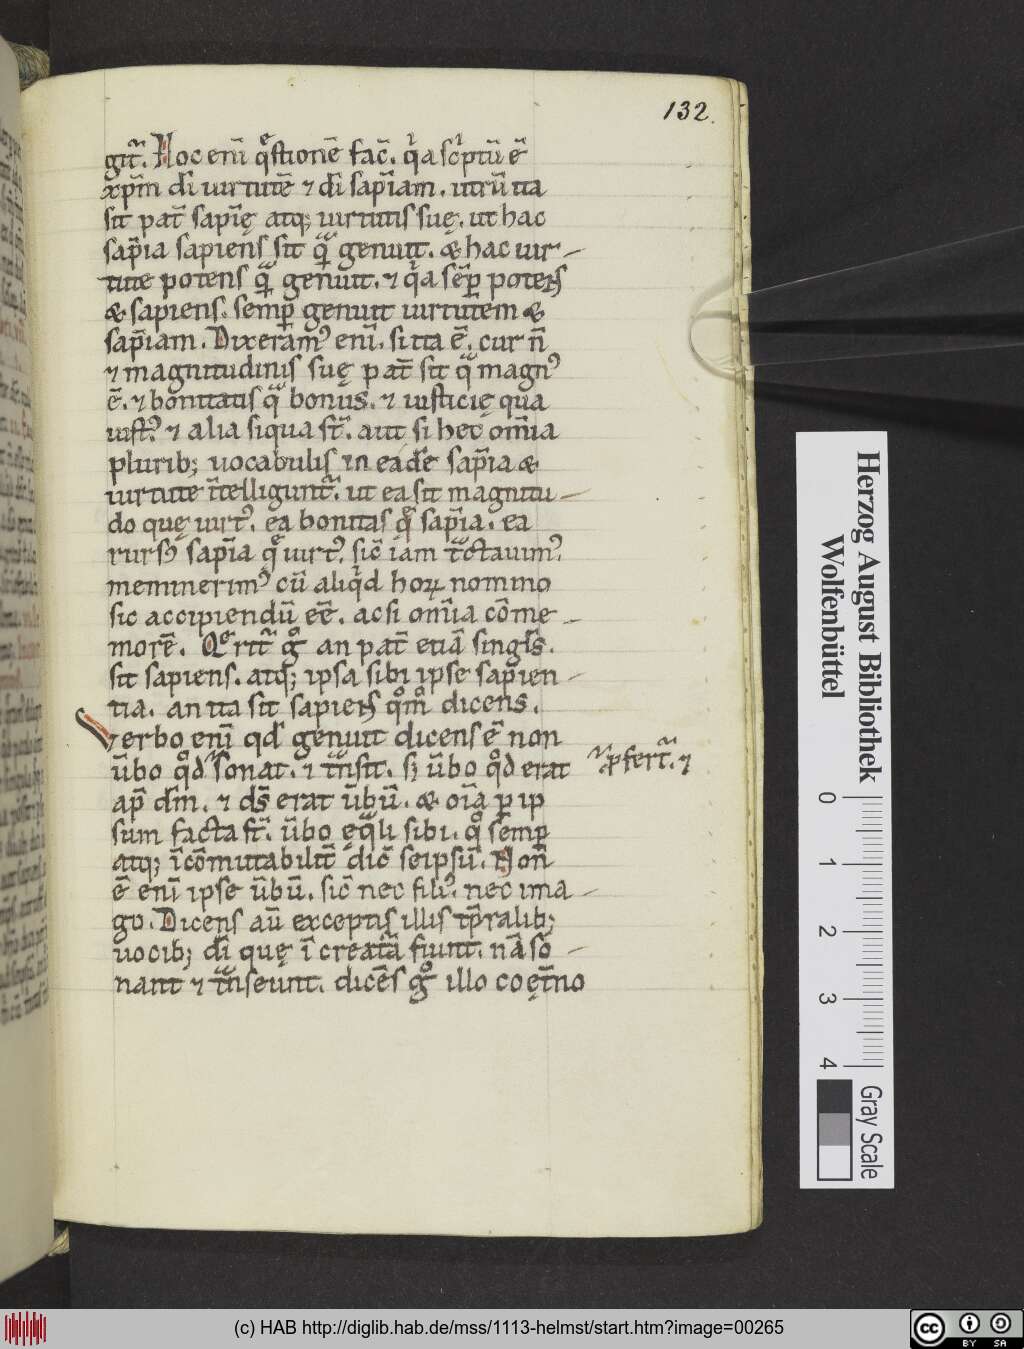 132.
git᷑. Hoc enī qͦstionē fac̄. qͥa scͥptū ē
xp̄m dī uirtutē ⁊ dī sap̄iam. utrū ita
sit pat̄ sap̄ię atq; uirtutis suę. ut hac
sap̄ia sapiens sit quā genuit. & hac uir-
tute potens quā genuit. ⁊ qͥa sēp potens
& sapiens. semp̄ genuit uirtutem &
sap̄iam. Dixeram᾿ enī. si ita ē. cur n̄
⁊ magnitudinis suę pat̄ sit qᷓ magn᾿
ē. ⁊ bonitatis qᷓ bonus. ⁊ iusticię qua
iust᾿. ⁊ alia siqua st̄. aut si hec om̄ia
plurib; uocabulis in eadē sap̄ia &
uirtute ītelligunt᷑. ut ea sit magnitu-
do quę uirt᾿. ea bonitas qͤ sap̄ia. ea
rurs᾿ sap̄ia qͤ uirt᾿. sic̄ iam tᷓctauim᾿.
meminerim᾿ cū aliqͥd hoꝝ nomino
sic accipiendū eē. acsi om̄ia cōme-
morē. Qͤrit᷑ gͦ an pat̄ etiā singl̄s.
sit sapiens. atq; ipsa sibi ipse sapien-
tia. an ita sit sapiens qͦm̄ dicens.
Verbo enī qd̄ genuit dicens ē non
ūbo qͦd sonat. ⁊ tᷓnsit. s; ūbo qͦd erat
p̄fert᷑. ⁊
ap̄ dm̄. ⁊ ds̄ erat ūbū. & oīa ꝑ ip
sum facta st̄. ūbo ęqᷓli sibi. qͦ semꝑ
atq; īcōmutabilit̄ dic̄ seipsū. Non̄
ē enī ipse ūbū. sic̄ nec fili᾿. nec ima-
go. Dicens aū exceptis illis tp̄ralib;
uocib; dī quę ī creat᷑a fiunt. nā so-
nant ⁊ tᷓnseunt. dicēs gͦ illo coęt̄no
Herzog August Bibliothek
Wolfenbüttel
0 1 2 3 4
Gray Scale
(c) HAB http://diglib.hab.de/mss/1113-helmst/start.htm?image=00265
cc BY SA